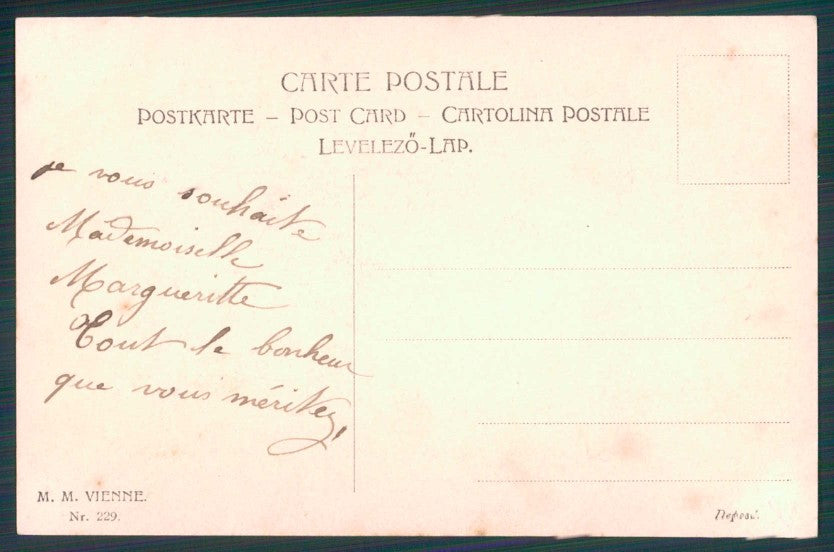 CARTE POSTALE
POSTKARTE – POST CARD – CARTOLINA POSTALE
LEVELEZŐ-LAP.
je vous souhaite
Mademoiselle
Margueritte
Tout le bonheur
que vous méritez,
M. M. VIENNE.
Nr. 229.
Deposé.